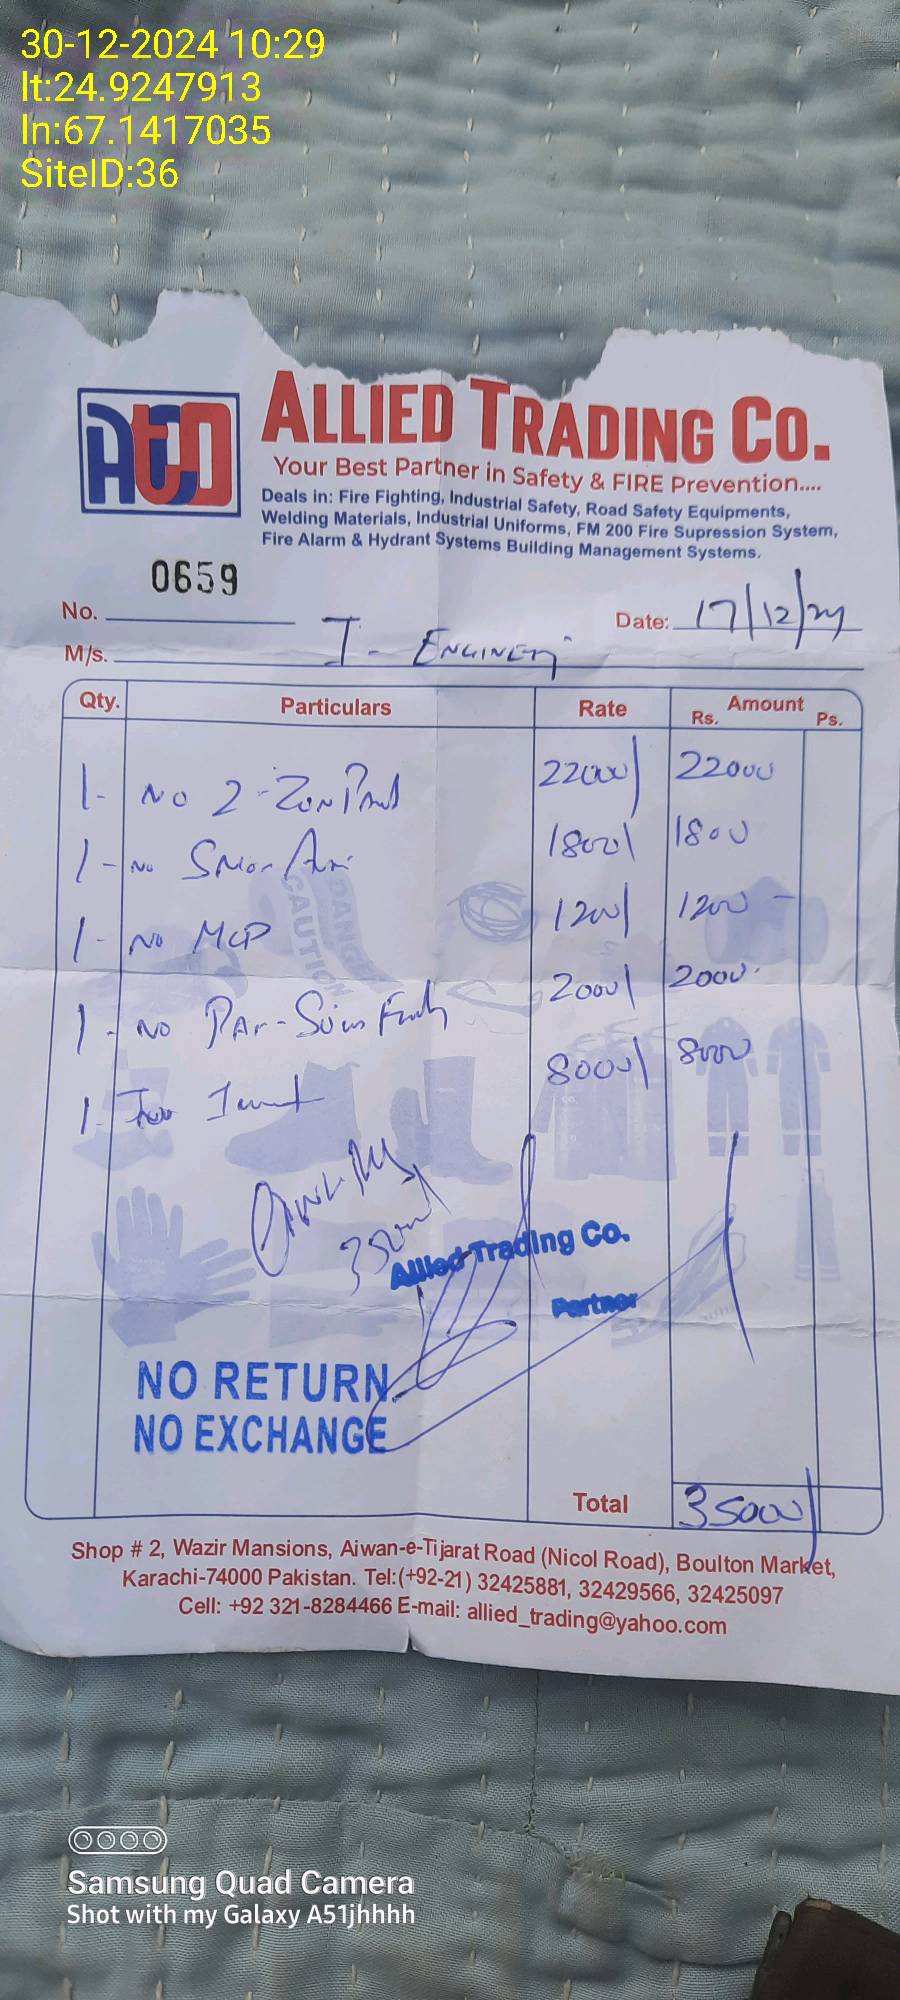 30-12-2024 10:29
lt:24.9247913
ln:67.1417035
SiteID:36
ATCO
ALLIED TRADING CO.
Your Best Partner in Safety & FIRE Prevention....
Deals in: Fire Fighting, Industrial Safety, Road Safety Equipments,
Welding Materials, Industrial Uniforms, FM 200 Fire Supression System,
Fire Alarm & Hydrant Systems Building Management Systems.
0659
No.
Date: 17/12/24
M/s. I - 
Qty. Particulars Rate Amount
Rs. Ps.
1- No 2-Zon 22000/ 22000
1- No 1800/ 1800
DANGER
CAUTION
1- No MCP 1200/ 1200 -
1- No 2000/ 2000
1- 8000/ 8000
35000/
Allied Trading Co.
Partner
NO RETURN
NO EXCHANGE
Total 35000/
Shop # 2, Wazir Mansions, Aiwan-e-Tijarat Road (Nicol Road), Boulton Market,
Karachi-74000 Pakistan. Tel:(+92-21) 32425881, 32429566, 32425097
Cell: +92 321-8284466 E-mail: allied_trading@yahoo.com
Samsung Quad Camera
Shot with my Galaxy A51jhhhh